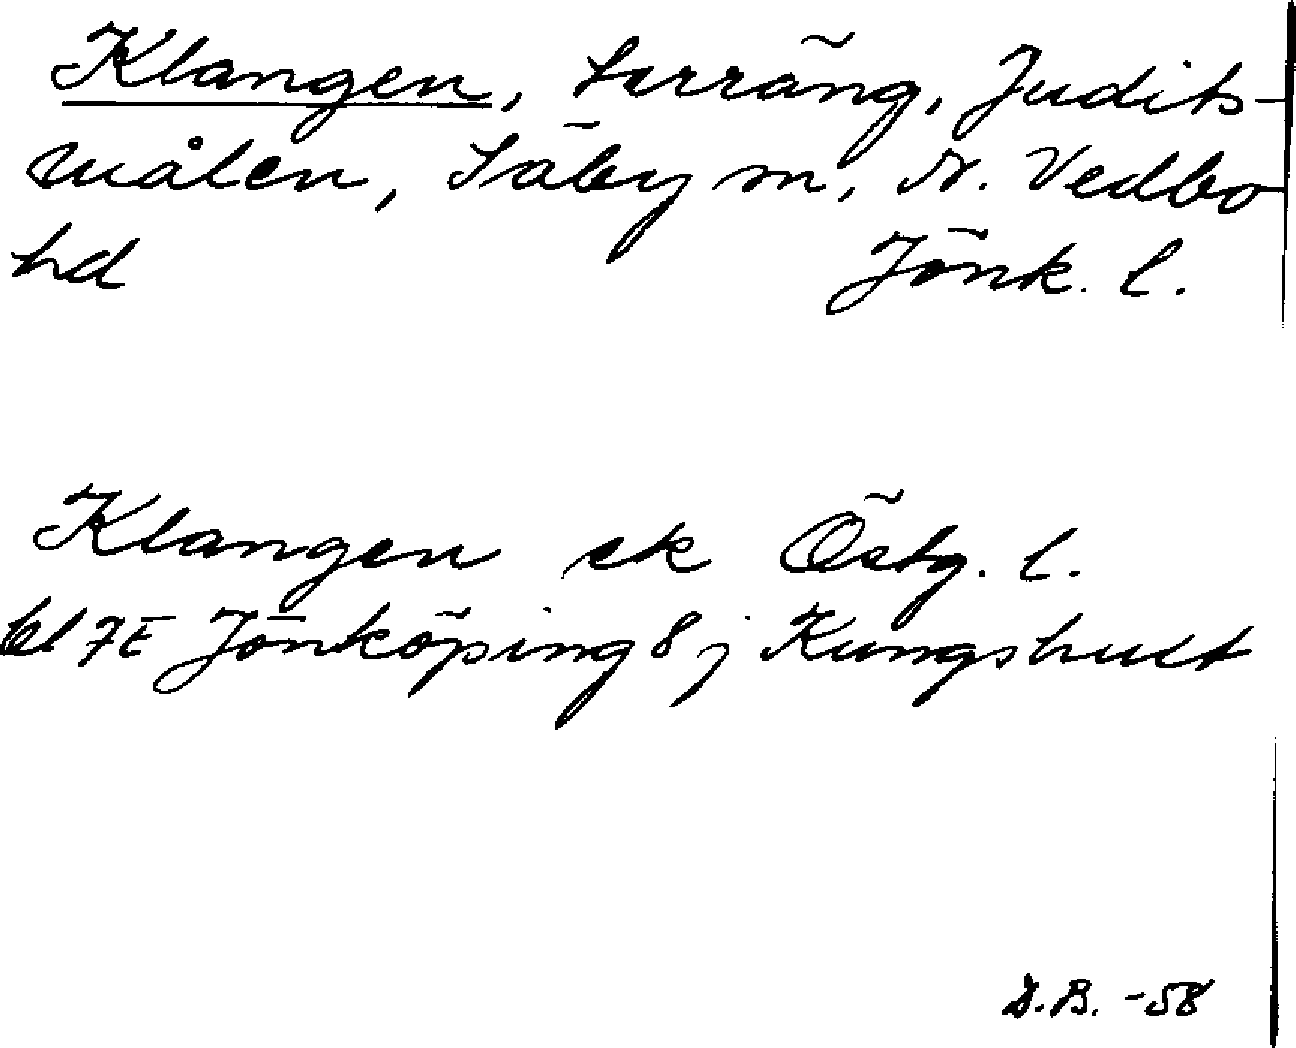 Klangen, terräng, Judits-
målen, Säby sn, N. Vedbo
hd Jönk. l.
Klangen ek Östg. l.
bl 7E Jönköping 8 j Kungshult
D.B. -58